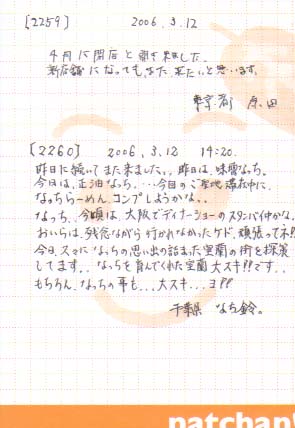 [2259] 2006.3.12
4月に閉店と聞き来ました。
新店舗になってもまた、来たいと思います。
東京都 原田
[2260] 2006.3.12 14:20.
昨日に続いてまた来ました。。昨日は、味噌なっち。
今日は、正油なっち...今回のご当地滞在中に、
なっちらーめん、コンプしようかな。。
なっち、今頃は、大阪でディナーショーのスタンバイ中かな。
おいらは、残念ながら行かれなかったケド、頑張ってネ!!
今日、スマにはなっちの思い出の詰まった室蘭の街を探策
してます。。なっちを育んでくれた室蘭大スキ!!です..
もちろん、なっちの事も...大スキ...ヨ!!
千葉県 なち鈴。
patchan